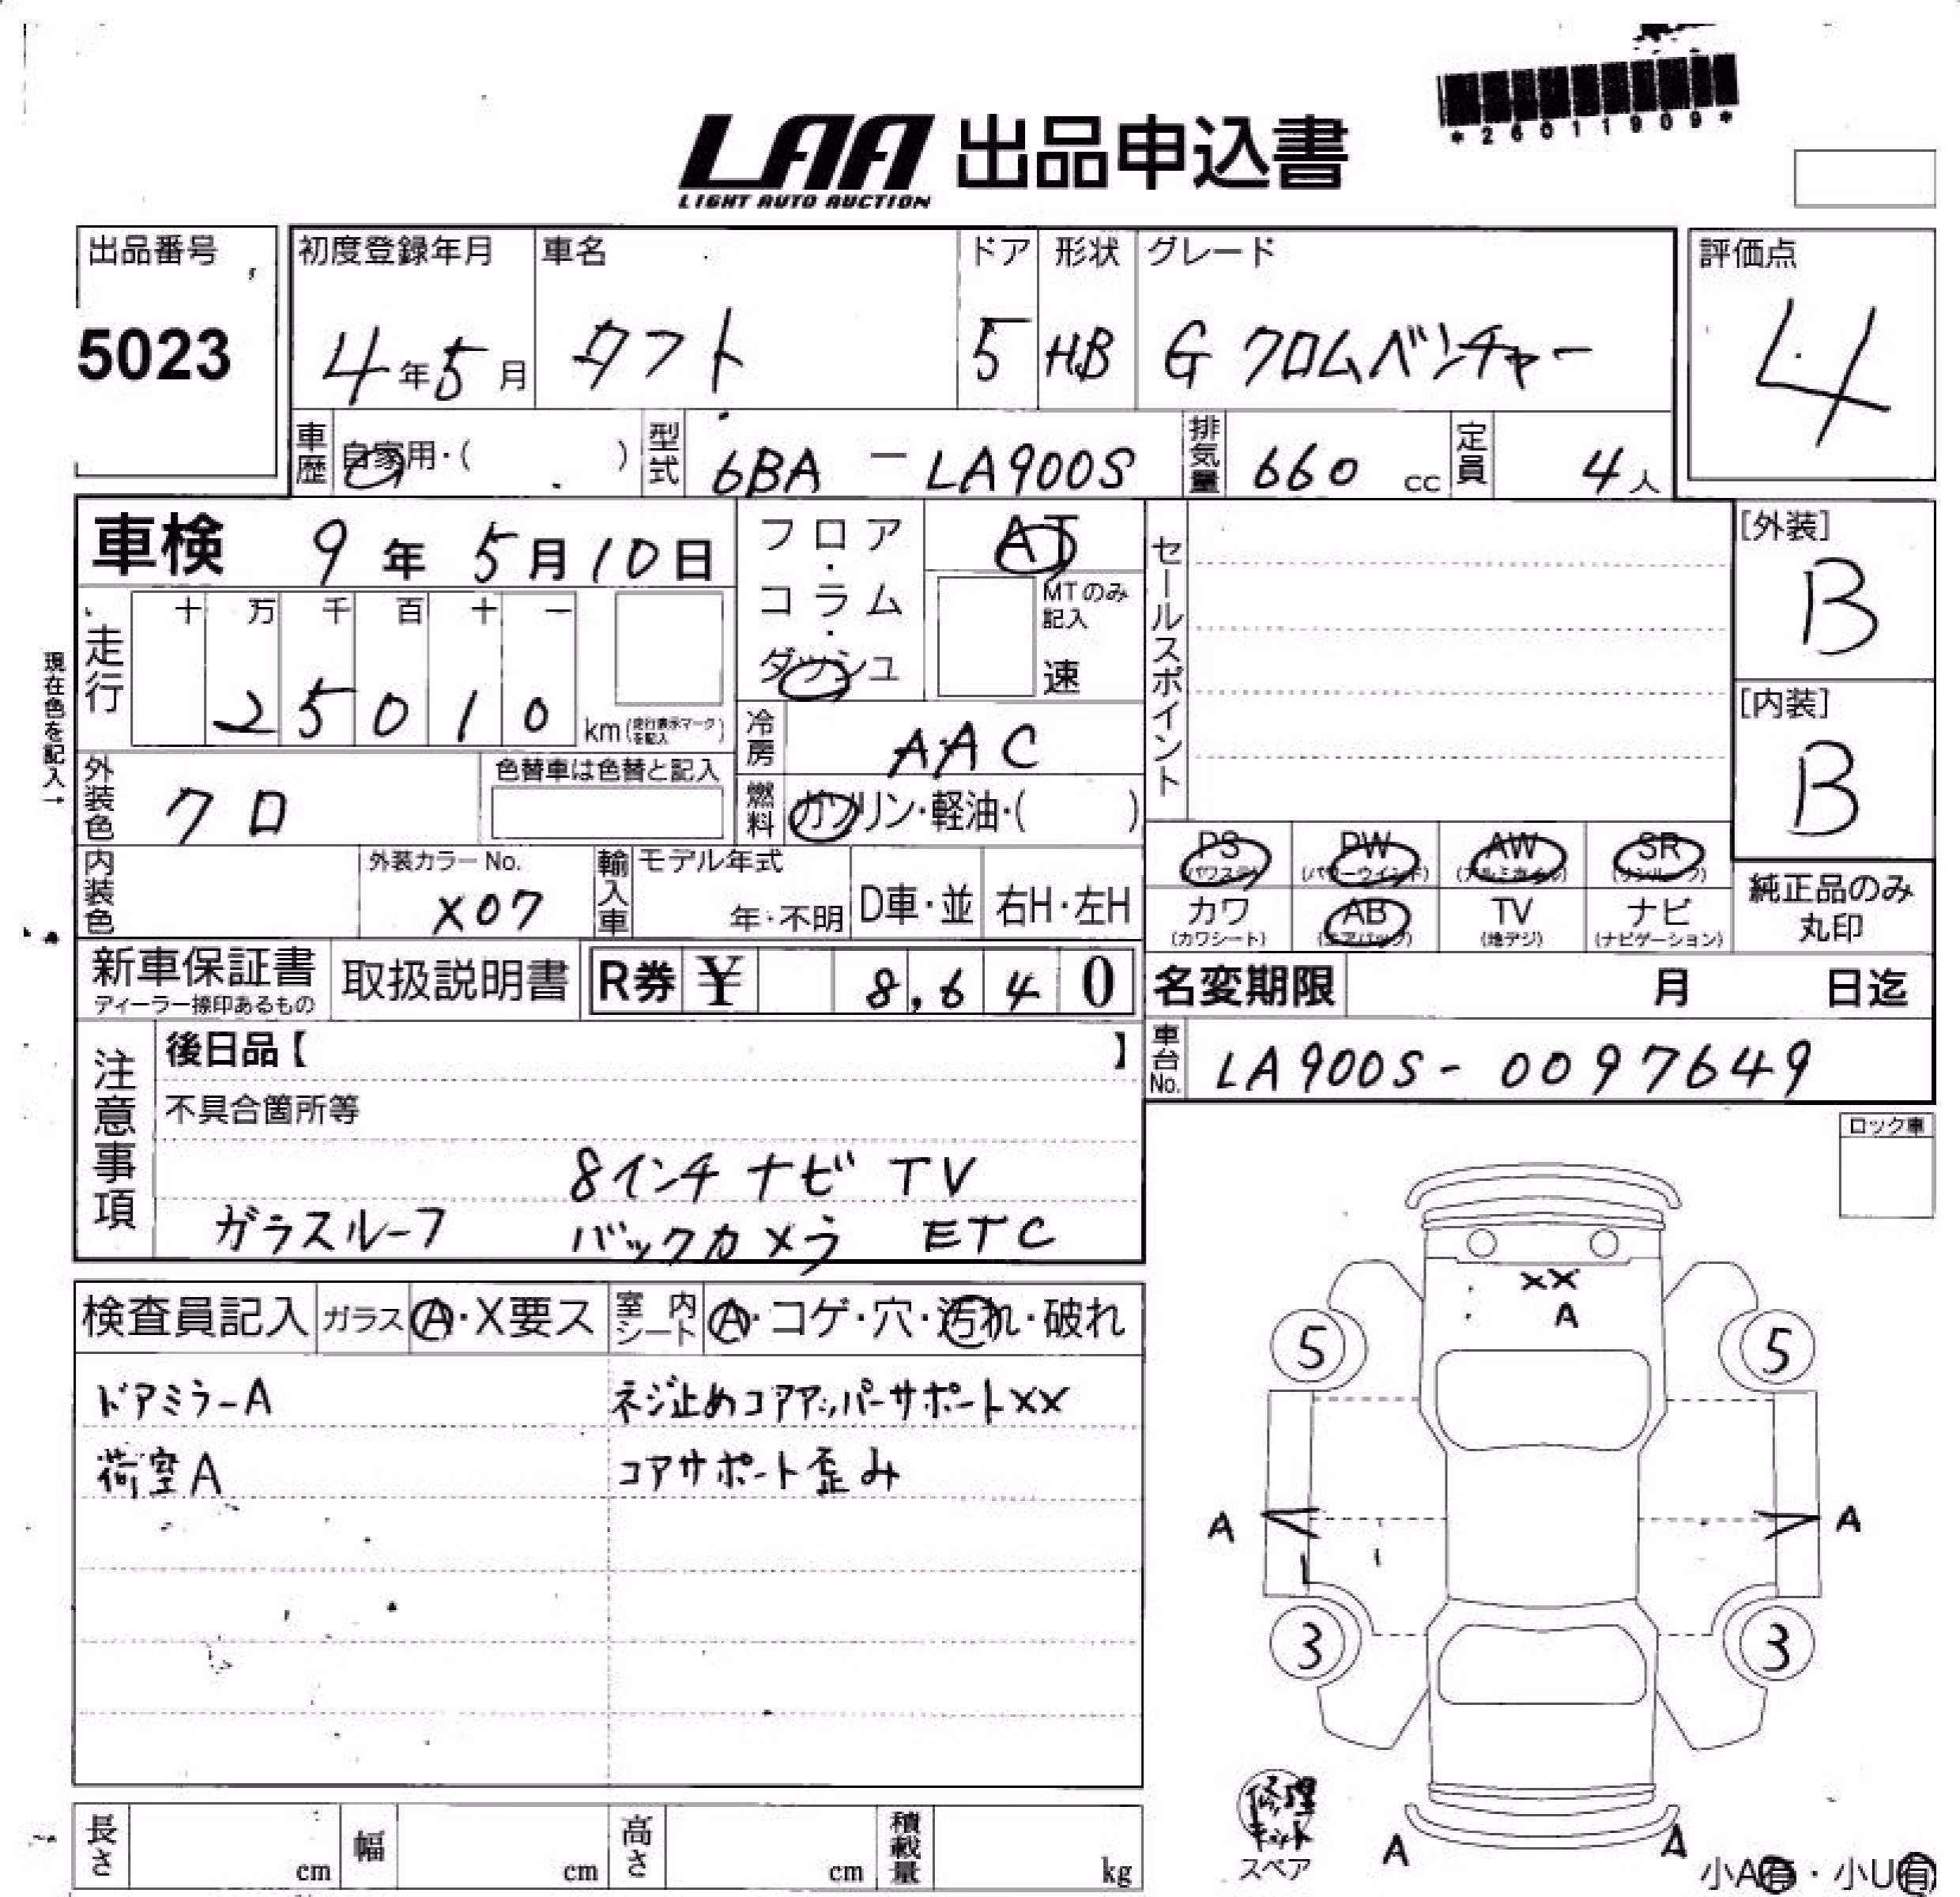 *26011909*
LAA 出品申込書
LIGHT AUTO AUCTION
出品番号
5023
初度登録年月
4年5月
車名
タフト
ドア
5
形状
HB
グレード
G クロムベンチャー
評価点
4
車歴 自家用・( )
型式 6BA - LA900S
排気量 660 cc
定員 4人
車検 9年5月10日
フロア・コラム・ダッシュ
AT
MTのみ記入
速
セールスポイント
[外装]
B
[内装]
B
現在色を記入→
走行
十 万 千 百 十 一
2 5 0 1 0
km(走行表示マークを記入)
冷房 AAC
外装色 クロ
色替車は色替と記入
燃料 ガソリン・軽油・( )
PS (パワステ)
PW (パワーウインド)
AW (アルミホイル)
SR (サンルーフ)
カワ (カワシート)
AB (エアバック)
TV (地デジ)
ナビ (ナビゲーション)
純正品のみ丸印
内装色
外装カラーNo.
X07
輸入車
モデル年式
年・不明
D車・並
右H・左H
新車保証書
ディーラー捺印あるもの
取扱説明書
R券 ¥ 8,640
名変期限 月 日迄
車台No. LA900S-0097649
注意事項
後日品【 】
不具合箇所等
8インチ ナビ TV
ガラスルーフ バックカメラ ETC
ロック車
検査員記入 ガラス A・X要ス 室内シート A・コゲ・穴・汚れ・破れ
ドアミラーA ネジ止めコアアッパーサポートXX
荷室A コアサポート歪み
XX
A
5 5
A A
3 3
修理キット
スペア
A A
小A有・小U有
長さ cm 幅 cm 高さ cm 積載量 kg